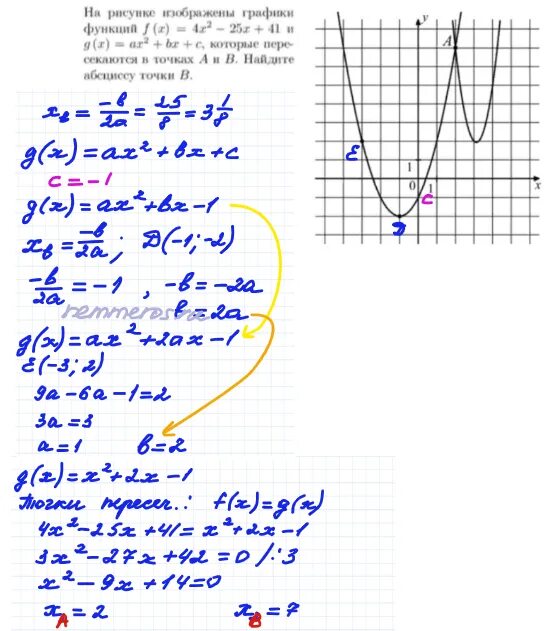 На рисунке изображены графики
функций f (x) = 4x² − 25x + 41 и
g (x) = ax² + bx + c, которые пере-
секаются в точках A и B. Найдите
абсциссу точки B.
y
A
E
1
0
1
C
x
D
x_в = -b/2a = 25/8 = 3 1/8
g(x) = ax² + bx + c
c = -1
g(x) = ax² + bx - 1
x_в = -b/2a ; D(-1; -2)
-b/2a = -1 , -b = -2a
b = 2a
g(x) = ax² + 2ax - 1
E(-3; 2)
9a - 6a - 1 = 2
3a = 3
a = 1 b = 2
g(x) = x² + 2x - 1
Точки пересеч.: f(x) = g(x)
4x² - 25x + 41 = x² + 2x - 1
3x² - 27x + 42 = 0 /:3
x² - 9x + 14 = 0
x_A = 2 x_B = 7